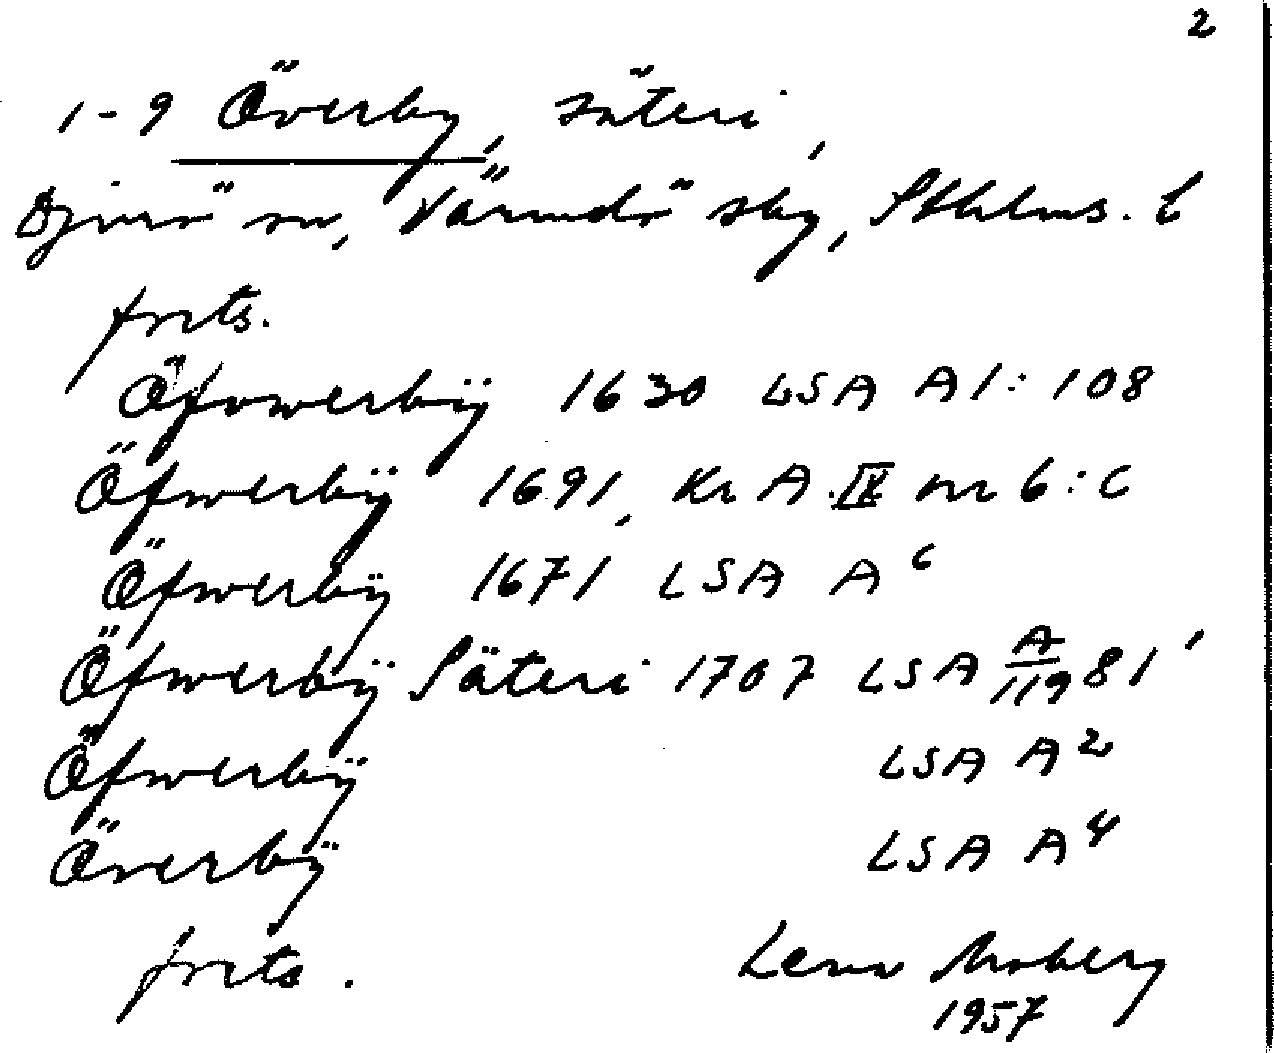 2
1-9 Överby, säteri,
Djurö sn, Värmdö skg, Sthlms. l
forts.
Öfvwerbÿ 1630 LSA A1:108
Öfwerbÿ 1691, Kr A. IX nr 6:c
Öfwerbÿ 1671 LSA A⁶
Öfwerbÿ Säteri 1707 LSA A/119 81'
Öfwerbÿ LSA A²
Överbÿ LSA A⁴
forts. Lena Moberg
1957